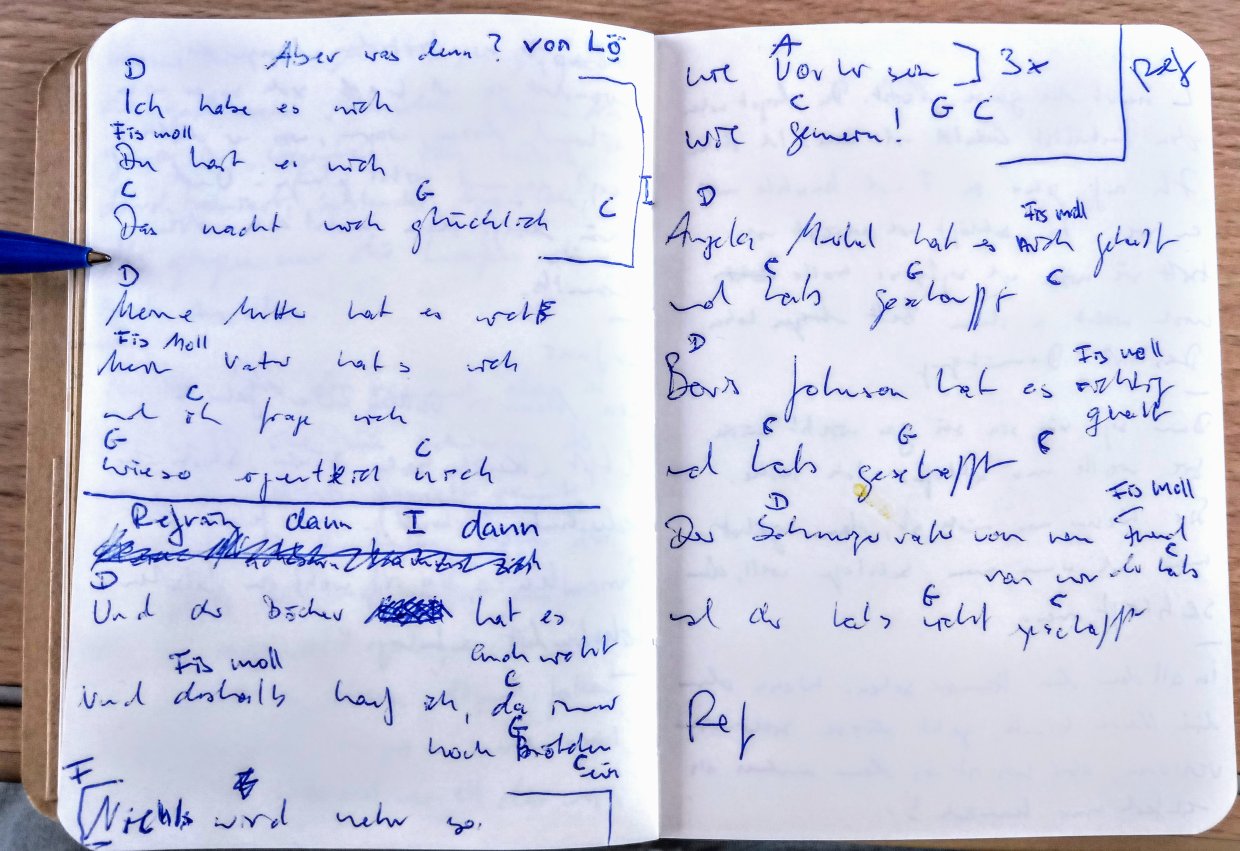 Aber was denn? von Lö
D
Ich habe es nich
Fis moll
Du hast es nich
C G C
Das macht mich glücklich
I
D
Meine Mutter hat es nicht
Fis Moll
Mein Vater hat s nich
C
und ich frage mich
G C
wieso eigentlich nich
Refrain dann I dann
D
Und der Bäcker hat es
auch nicht
Fis moll
und deshalb kauf ich, da immer
C
noch Brötchen
G
ein
C
F
Nichts wird mehr so
A
wie vorher sein ] 3x
Ref
C G C
wie gestern!
D Fis moll
Angela Merkel hat es auch gehabt
C G C
und hats geschafft
D Fis moll
Boris Johnson hat es richtig
gehabt
C G C
und hats geschafft
D Fis moll
Der Schwiegervater von nem Freund
von mir der hats
C
und der hats nicht geschafft
G C
Ref